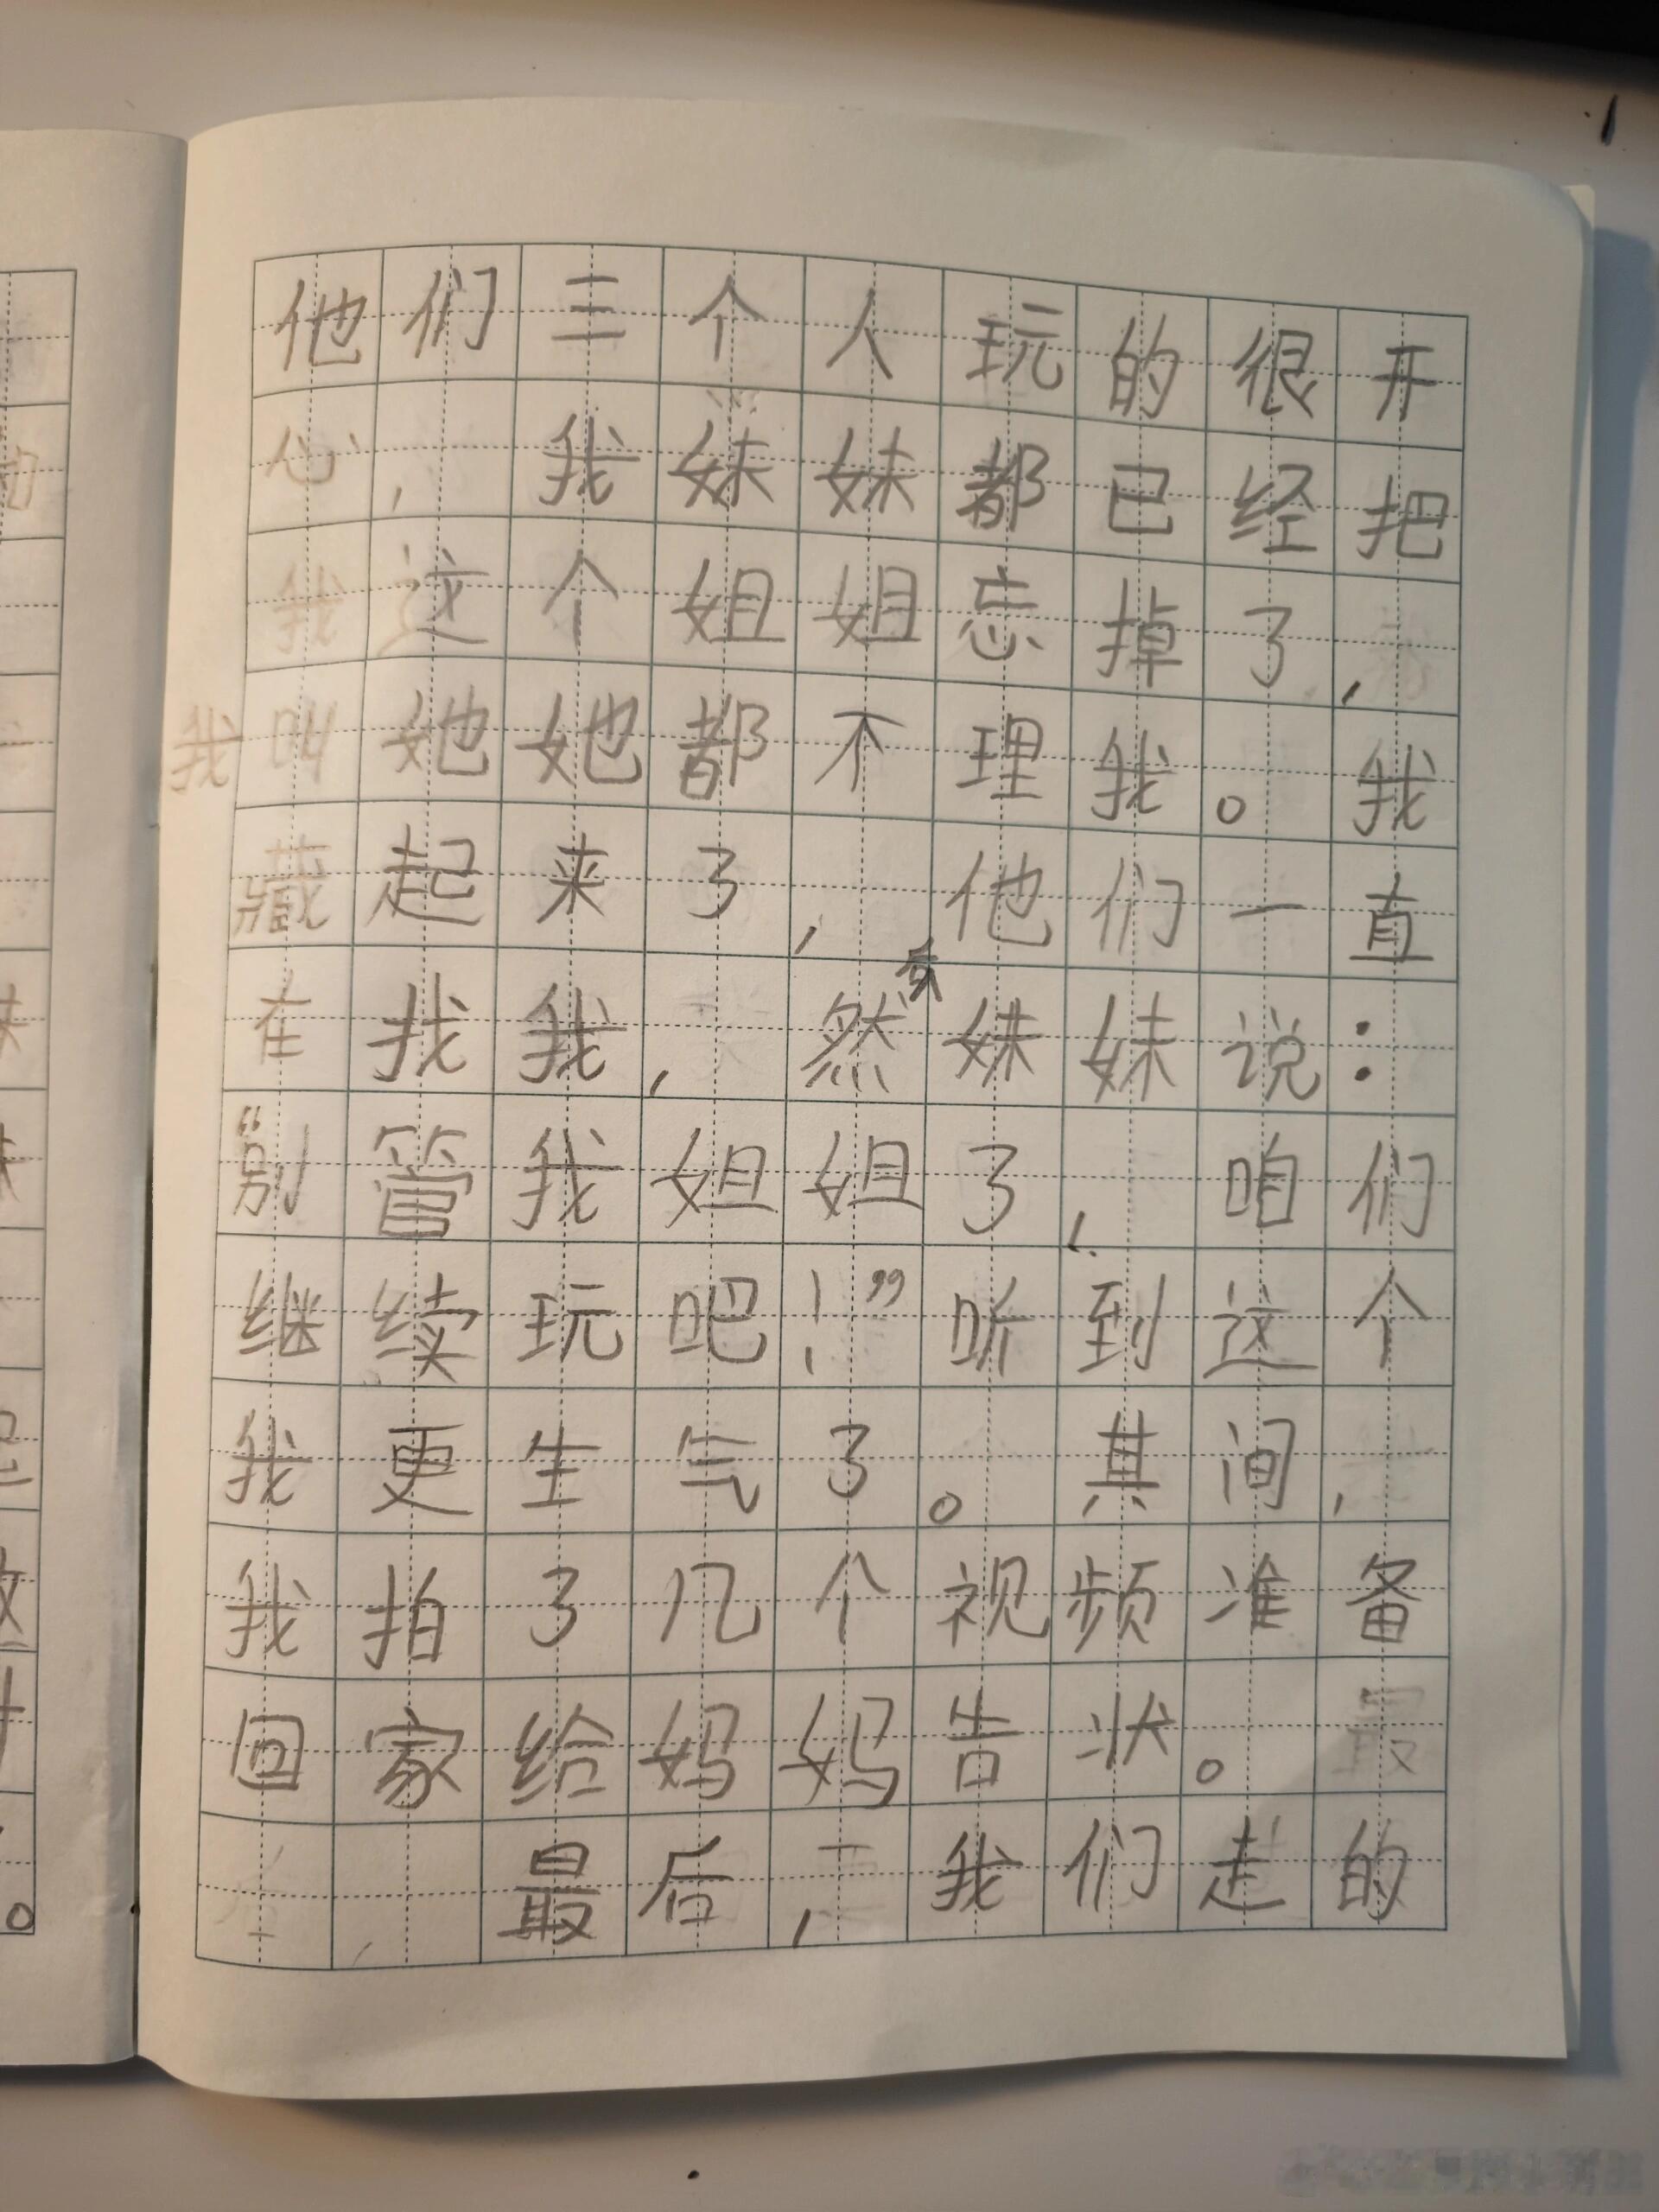 他们三个人玩的很开
心，我妹妹都已经把
我这个姐姐忘掉了，
我叫她她都不理我。我
藏起来了，他们一直
在找我，然后妹妹说：
“别管我姐姐了，咱们
继续玩吧！”听到这个
我更生气了。其间，
我拍了几个视频准备
回家给妈妈告状。
最后，我们走的